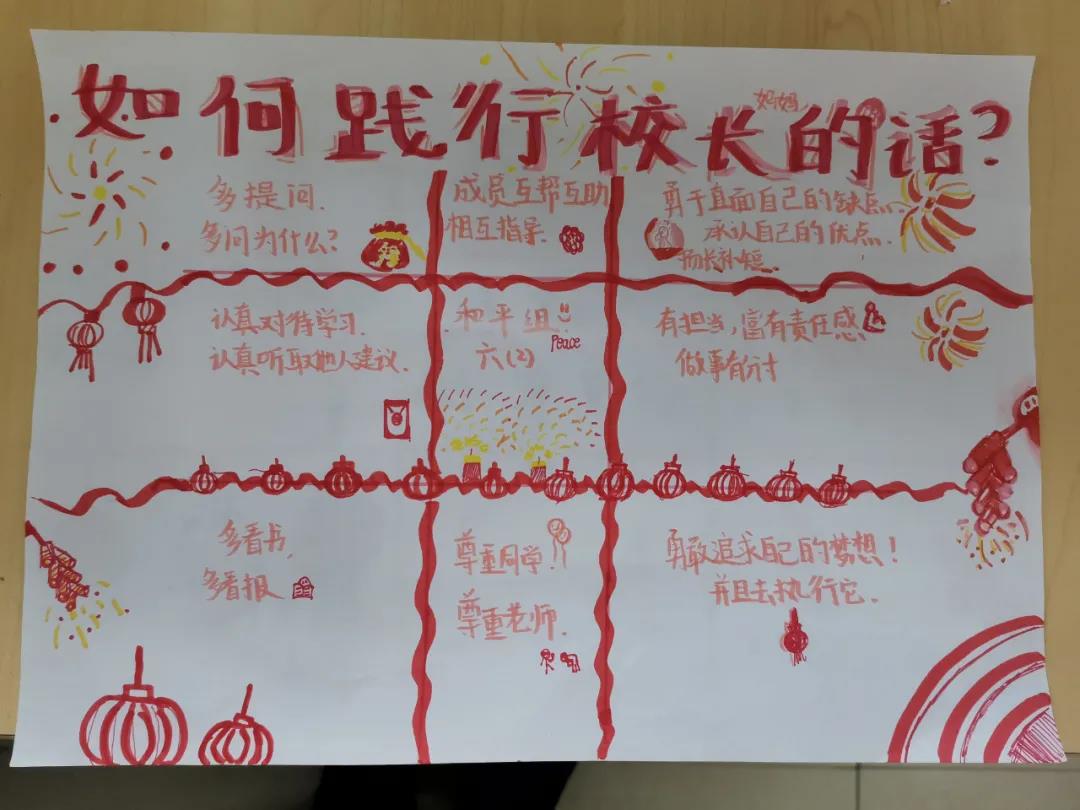 如何践行校长妈妈的话？
多提问.
多问为什么？
成员互帮互助
相互指导.
勇于直面自己的缺点.
承认自己的优点.
扬长补短.
认真对待学习.
认真听取他人建议.
和平组
Peace
六(2)
有担当，富有责任感
做事有分寸
多看书,
多看报
尊重同学!
尊重老师.
勇敢追求自己的梦想！
并且去执行它.